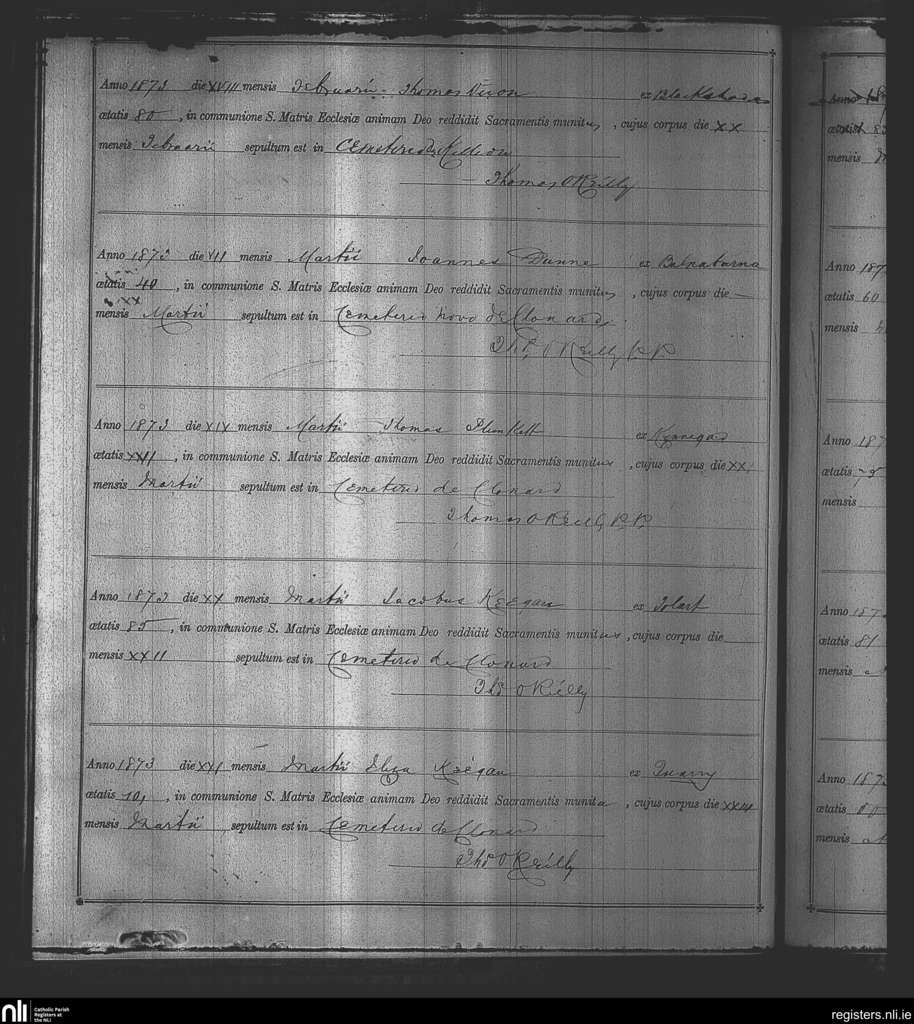 Anno 1873 die XVIII mensis Februarii Thomas Dixon ex
ætatis 80, in communione S. Matris Ecclesiæ animam Deo reddidit Sacramentis munitus, cujus corpus die XX
mensis Februarii sepultum est in Cemeterio de Killion
Thomas O Reilly
Anno 1873 die VII mensis Martii Joannes Dunne ex
ætatis 40, in communione S. Matris Ecclesiæ animam Deo reddidit Sacramentis munitus, cujus corpus die
mensis Martii sepultum est in Cemeterio novo de Clonard
Ths O Reilly P.P.
Anno 1873 die XIX mensis Martii Thomas Plunkett ex Kinnegad
ætatis XXII, in communione S. Matris Ecclesiæ animam Deo reddidit Sacramentis munitus, cujus corpus die XXI
mensis Martii sepultum est in Cemeterio de Clonard
Thomas O Reilly P.P.
Anno 1873 die XX mensis Martii Jacobus Keegan ex
ætatis 85, in communione S. Matris Ecclesiæ animam Deo reddidit Sacramentis munitus, cujus corpus die
mensis XXII sepultum est in Cemeterio de Clonard
Ths O Reilly
Anno 1873 die XXI mensis Martii Eliza Keegan ex Quarry
ætatis 10, in communione S. Matris Ecclesiæ animam Deo reddidit Sacramentis munita, cujus corpus die
mensis Martii sepultum est in Cemeterio de Clonard
Ths O Reilly
Anno
ætatis
mensis
Anno 187
ætatis 60
mensis
Anno 187
ætatis
mensis
Anno 187
ætatis 81
mensis
Anno 187
ætatis
mensis
nli Catholic Parish
Registers at
the NLI
registers.nli.ie